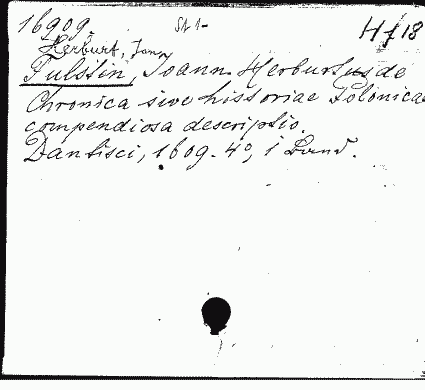 16909. St 1- Hf 18
Herburt, Jann
Fulstin, Joann. Herburtus de
Chronica sive historiae Polonicae
compendiosa descriptio.
Dantisci, 1609. 4°, 1 Band.